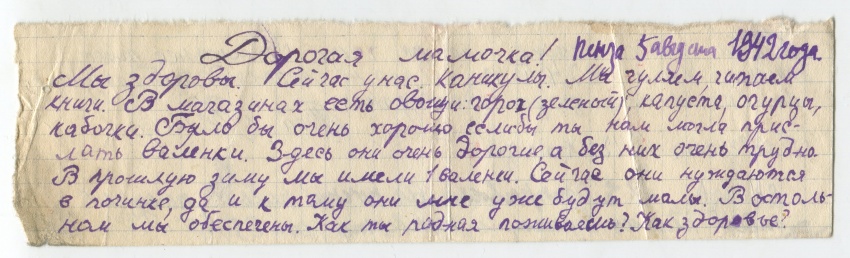 Дорогая мамочка! Пенза 5 августа 1942 года.
Мы здоровы. Сейчас у нас каникулы. Мы гуляем, читаем
книги. В магазинах есть овощи: горох (зеленый), капуста, огурцы,
кабочки. Было бы очень хорошо если бы ты нам могла прис-
лать валенки. Здесь они очень дорогие, а без них очень трудно.
В прошлую зиму мы имели 1 валенки. Сейчас они нуждаются
в починке, да и к таму они мне уже будут малы. В осталь-
ном мы обеспечены. Как ты родная поживаешь? Как здоровье?